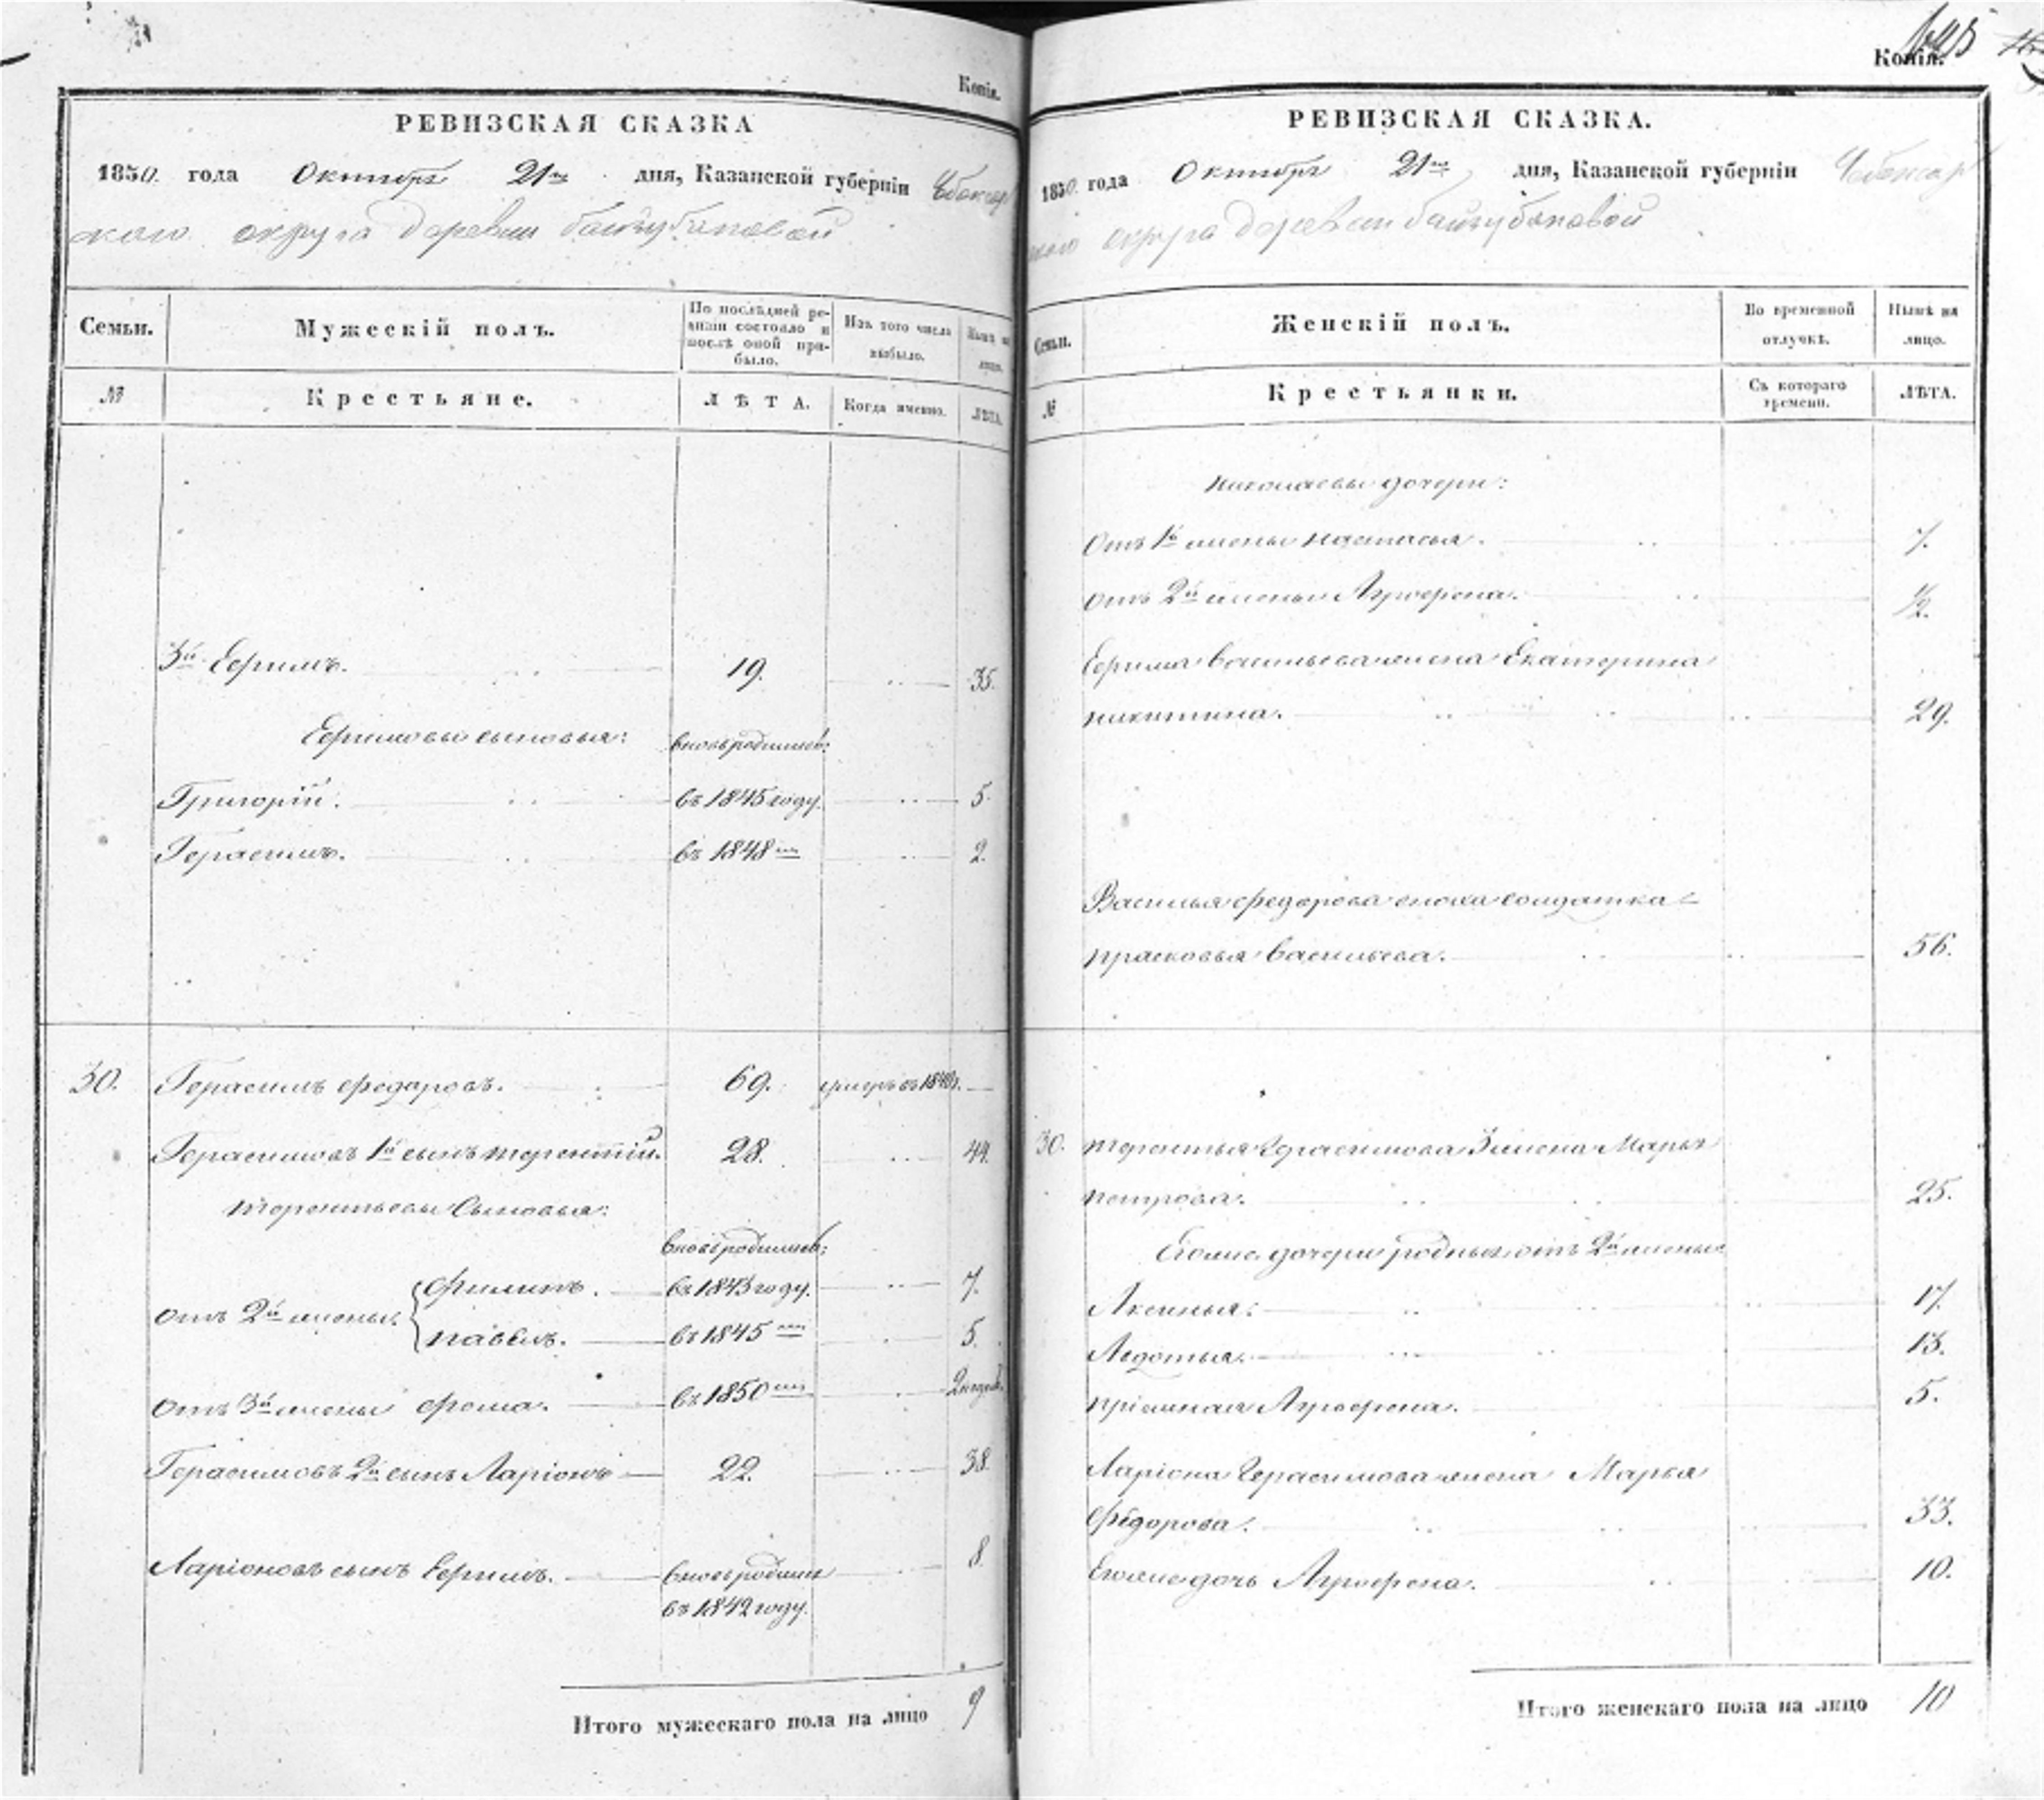 Копія.
РЕВИЗСКАЯ СКАЗКА
1850. года Октября 21го дня, Казанской губерніи Чебоксар
ского округа деревни
Семьи.
Мужескій полъ.
По послѣдней ре-
визіи состояло и
послѣ оной при-
было.
Изъ того числа
выбыло.
Нынѣ на
лицо.
№
Крестьяне.
ЛѢТА.
Когда именно.
ЛѢТА.
3й Ефимъ. 19. 35.
Ефимовы сыновья: вновь рожденные:
Григорій. въ 1845 году. 5.
Герасимъ. въ 1848 2.
30. Герасимъ Федоровъ. 69. умеръ въ
Герасимовъ 1й сынъ Терентій. 28. 44.
Терентьевы сыновья:
от 2й жены Филипъ. въ 1843 году. 7.
Павелъ. въ 1845 5.
отъ 3й жены Фома. въ 1850
Герасимовъ 2й сынъ Ларіонъ 22. 38.
Ларіоновъ сынъ Ефимъ. 8.
въ 1842 году.
Итого мужескаго пола на лицо 9
Копія.
РЕВИЗСКАЯ СКАЗКА.
1850. года Октября 21го дня, Казанской губерніи Чебоксар
ского округа деревни
Семьи.
Женскій полъ.
Во временной
отлучкѣ.
Нынѣ на
лицо.
№
Крестьянки.
Съ котораго
времени.
ЛѢТА.
Николаевы дочери:
отъ 1й жены Настасья. 7.
отъ 2й жены Агрофена. 1/2.
Ефима Васильева жена Екатерина
Никитина. 29.
Василья Федорова сноха солдатка
Прасковья Васильева. 56.
30. Терентья Герасимова 3 жена Марья
Петрова. 25.
Егоже дочери родныя отъ 2й жены
Аксинья: 17.
Авдотья. 13.
пріемная Агрофена. 5.
Ларіона Герасимова жена Марья
Федорова. 33.
Егоже дочь Агрофена. 10.
Итого женскаго пола на лицо 10